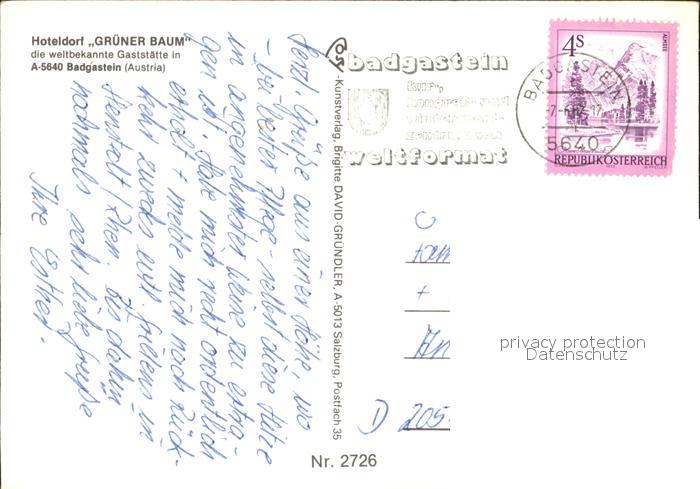 Hoteldorf „GRÜNER BAUM"
die weltbekannte Gaststätte in
A-5640 Badgastein (Austria)
Herzl. Grüße aus einer Höhe, wo
- bei bester Pflege - selbst diese Hitze
in angenehmster Weise zu ertra-
gen ist. Habe mich recht ordentlich
erholt + melde mich nach Rück-
kehr zurück
in
bis dahin
nochmals sehr liebe Grüße
Ihre Esther.
-Kunstverlag, Brigitte DAVID-GRÜNDLER, A-5013 Salzburg, Postfach 35
Nr. 2726
badgastein
weltformat
BADGASTEIN
5640
4S
ALMSEE
REPUBLIK ÖSTERREICH
Fam
+
An
D 205
privacy protection
Datenschutz